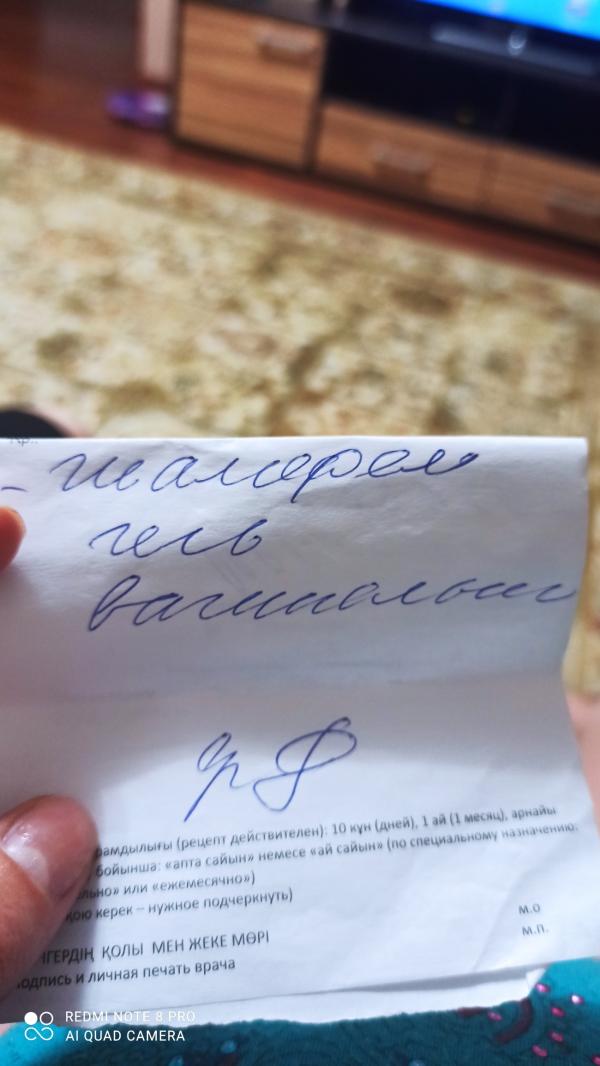 гель
вагинальн
рамдылығы (рецепт действителен): 10 күн (дней), 1 ай (1 месяц), арнайы
бойынша: «апта сайын» немесе «ай сайын» (по специальному назначению:
ельно» или «ежемесячно»)
қою керек – нужное подчеркнуть)
ІГЕРДІҢ ҚОЛЫ МЕН ЖЕКЕ МӨРІ
М.О
одпись и личная печать врача
М.П.
REDMI NOTE 8 PRO
AI QUAD CAMERA